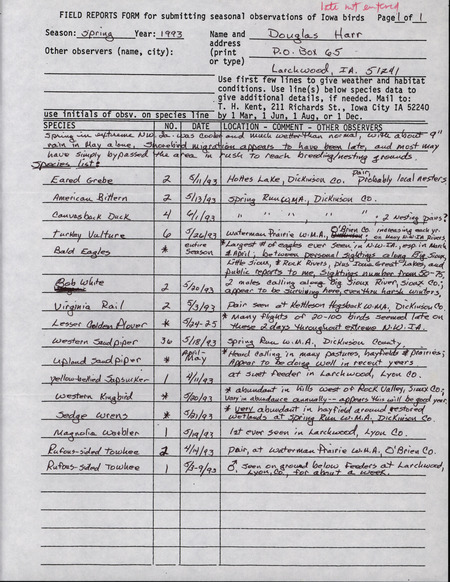 late not entered
FIELD REPORTS FORM for submitting seasonal observations of Iowa birds Page 1 of 1
Season: Spring Year: 1993 Name and Douglas Harr
Other observers (name, city): address P.O. Box 65
(print
or type) Larchwood, IA. 51241
Use first few lines to give weather and habitat
conditions. Use line(s) below species data to
give additional details, if needed. Mail to:
T. H. Kent, 211 Richards St., Iowa City IA 52240
use initials of obsv. on species line by 1 Mar, 1 Jun, 1 Aug, or 1 Dec.
SPECIES NO. DATE LOCATION - COMMENT - OTHER OBSERVERS
Spring in extreme N.W. Ia. was cooler and much wetter than normal, with about 9"
rain in May alone. Shorebird migration appears to have been late, and most may
have simply bypassed the area in rush to reach breeding/nesting grounds.
Species list:
Eared Grebe 2 5/11/93 Hottes Lake, Dickinson Co. pair, Probably local nesters
American Bittern 2 5/13/93 Spring Run W.M.A., Dickinson Co.
Canvasback Duck 4 6/1/93 " " " " " ; 2 nesting pairs?
Turkey Vulture 6 5/26/93 Waterman Prairie W.M.A., O'Brien Co. increasing each yr. on many N.W. IA Rivers
Bald Eagles * entire season * Largest # of eagles ever seen in N.W. IA, esp. in March
& April, between personal sightings along Big Sioux,
Little Sioux, & Rock Rivers, plus Iowa Great Lakes, and
public reports to me, sightings number from 50-75.
Bob White 2 5/20/93 2 males calling along Big Sioux River, Sioux Co.;
appear to be surviving here, even thru harsh winters.
Virginia Rail 2 5/3/93 Pair seen at Kettleson Hogsback W.M.A., Dickinson Co
Lesser Golden Plover * 5/24-25 * Many flights of 20-100 birds seemed late on
these 2 days throughout extreme N.W. IA.
Western Sandpiper 36 5/18/93 Spring Run W.M.A., Dickinson County.
Upland Sandpiper * April-May * Heard calling in many pastures, hayfields & prairies;
Appear to be doing well in recent years
Yellow-bellied Sapsucker 1 4/11/93 at suet feeder in Larchwood, Lyon Co.
Western Kingbird * 5/20/93 * abundant in hills west of Rock Valley, Sioux Co;
Vary in abundance annually -- appears this will be good year.
Sedge Wrens * 5/21/93 * very abundant in hayfield around restored
wetlands at Spring Run W.M.A., Dickinson Co
Magnolia Warbler 1 5/19/93 1st ever seen in Larchwood, Lyon Co.
Rufous-sided Towhee 2 4/14/93 pair, at Waterman Prairie W.M.A., O'Brien Co.
Rufous-sided Towhee 1 5/3-9/93 ♂, seen on ground below feeders at Larchwood,
Lyon Co., for about a week.